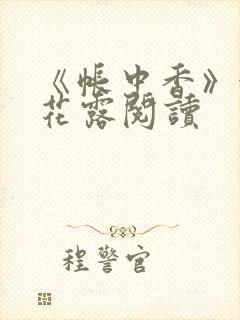 《帳中香》
花露閱讀
程警官